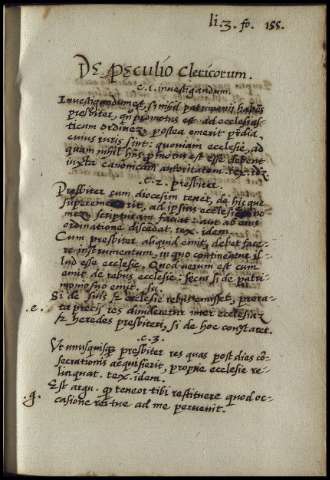 li. 3. fo. 155.
De Peculio Clericorum.
c. 1. investigandum.
Investigandum est, si nihil patrimonii habens
presbiter, qn promotus est ad ecclesias
ticum ordinez, postea emerit predia,
cuius iuris sint: quoniam ecclesie, ad
quam nihil hns promotus est esse debent
iuxta canonicam autoritatem. tex. idez
c. 2. presbiter.
Presbiter cum diocesim tenet, de hic que
ad ipsius ecclesie
scripturam faciat: aut ab eius
ordinatione discedat. tex. idem.
Cum presbiter aliquid emit, debet face-
re instrumentum, in quo contineant il-
lud esse ecclesie. Quod uerum est cum
emit de rebus ecclesie: secus si de patri-
monio suo emit.
Si de suis et ecclesie rebus emisset, pro ra-
ta precii res diuiderentur inter ecclesiam
.e. et heredes presbiteri, si de hoc constaret.
c. 3.
Ut unusquisque presbiter res quas post dies co-
secrationis acquisierit, proprie ecclesie re-
linquat. tex. idem.
.q. Est argu. quod teneor tibi restituere quod oc-
casione rei tue ad me peruenit.